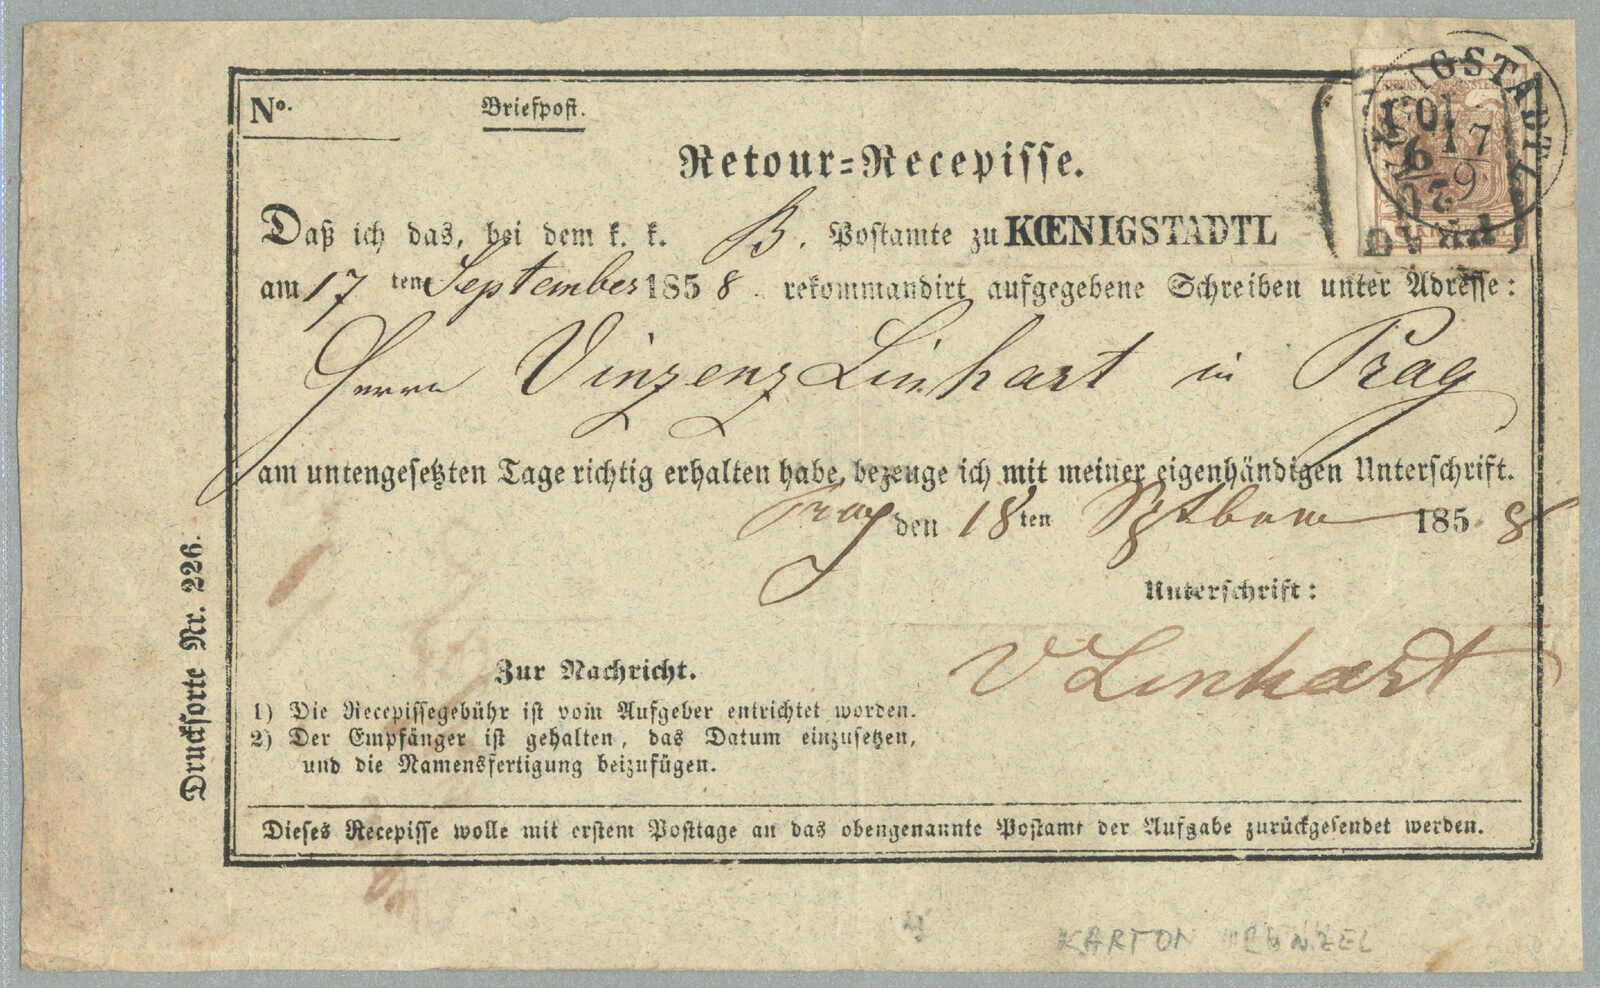 No.
Briefpost.
Retour=Recepisse.
Daß ich das, bei dem k. k. B. Postamte zu KŒNIGSTADTL
am 17 ten September 1858. rekommandirt aufgegebene Schreiben unter Adresse:
Herrn Vinzenz Linhart in Prag
am untengesetzten Tage richtig erhalten habe, bezeuge ich mit meiner eigenhändigen Unterschrift.
Prag den 18ten Septbem 1858
Unterschrift:
V Linhart
Zur Nachricht.
1) Die Recepissegebühr ist vom Aufgeber entrichtet worden.
2) Der Empfänger ist gehalten, das Datum einzusetzen,
und die Namensfertigung beizufügen.
Dieses Recepisse wolle mit erstem Posttage an das obengenannte Postamt der Aufgabe zurückgesendet werden.
Drucksorte Nr. 226.
17
9
PRAG
KARTON